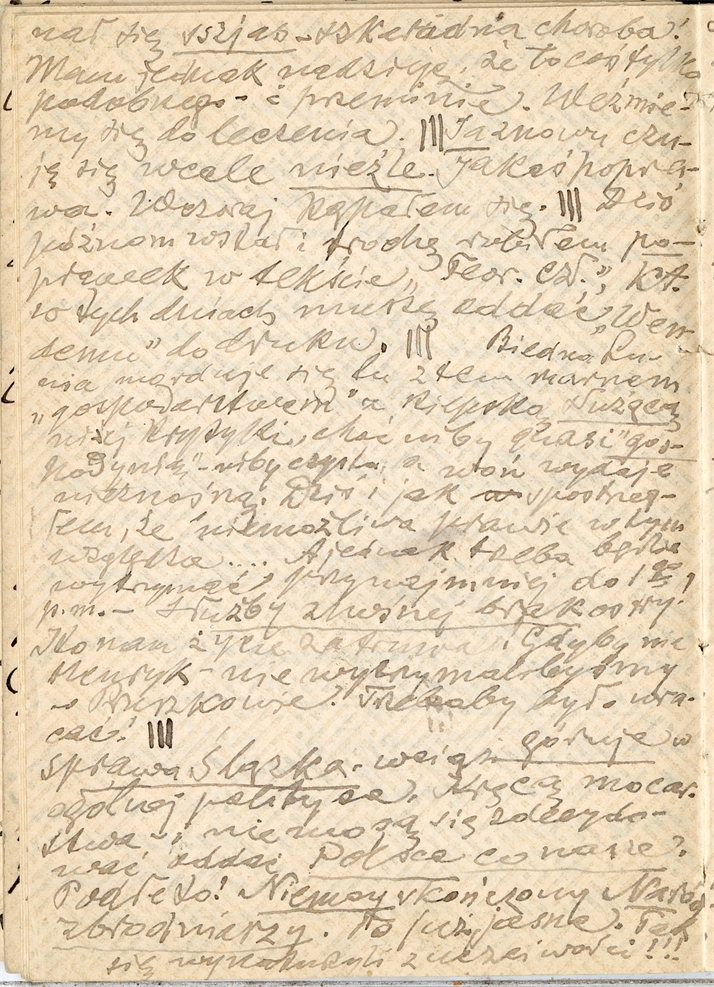 nał się świąd – szkaradna choroba!
Mam jednak nadzieję, że to coś tylko
podobnego – i przeminie. Weźmie-
my się do leczenia. ||| Ja znowu czu-
ję się wcale nieźle. Jakaś popra-
wa. Wczoraj kąpałem się. ||| Dziś
późnom wstał i trochę robiłem po-
prawek w tekście „Teor. czł.”, kt.
w tych dniach muszę oddać „Wen-
demu” do druku. ||| Biedna Lu-
nia morduje się tu z tem marnem
„gospodarstwem” a kiepską służącą
niżej krytyki, choć niby quasi „gos-
podynią” – niby czysta, a woń wydaje
nieznośną. Dziś i jak spostrzeg-
łem, że niemożliwa prawie w tym
względzie.... A jednak trzeba będzie
wytrzymać, przynajmniej do 1go
p.m. – Służby znośnej brak oswy!
To nam życie zatruwa. Gdyby nie
Henryk – nie wytrzymalibyśmy
w Brzezkowie. Trzebaby było wra-
cać! |||
sprawa Śląska. wciąż góruje w
ogólnej polityce. Kręcą mocar-
stwa – i nie mogą się zdecydo-
wać oddać Polsce co nasze?.
Podłe to! Niemcy skończony Naród
zbrodniarzy. To już jasne. Tak
się wyzuli z uczciwości!!!